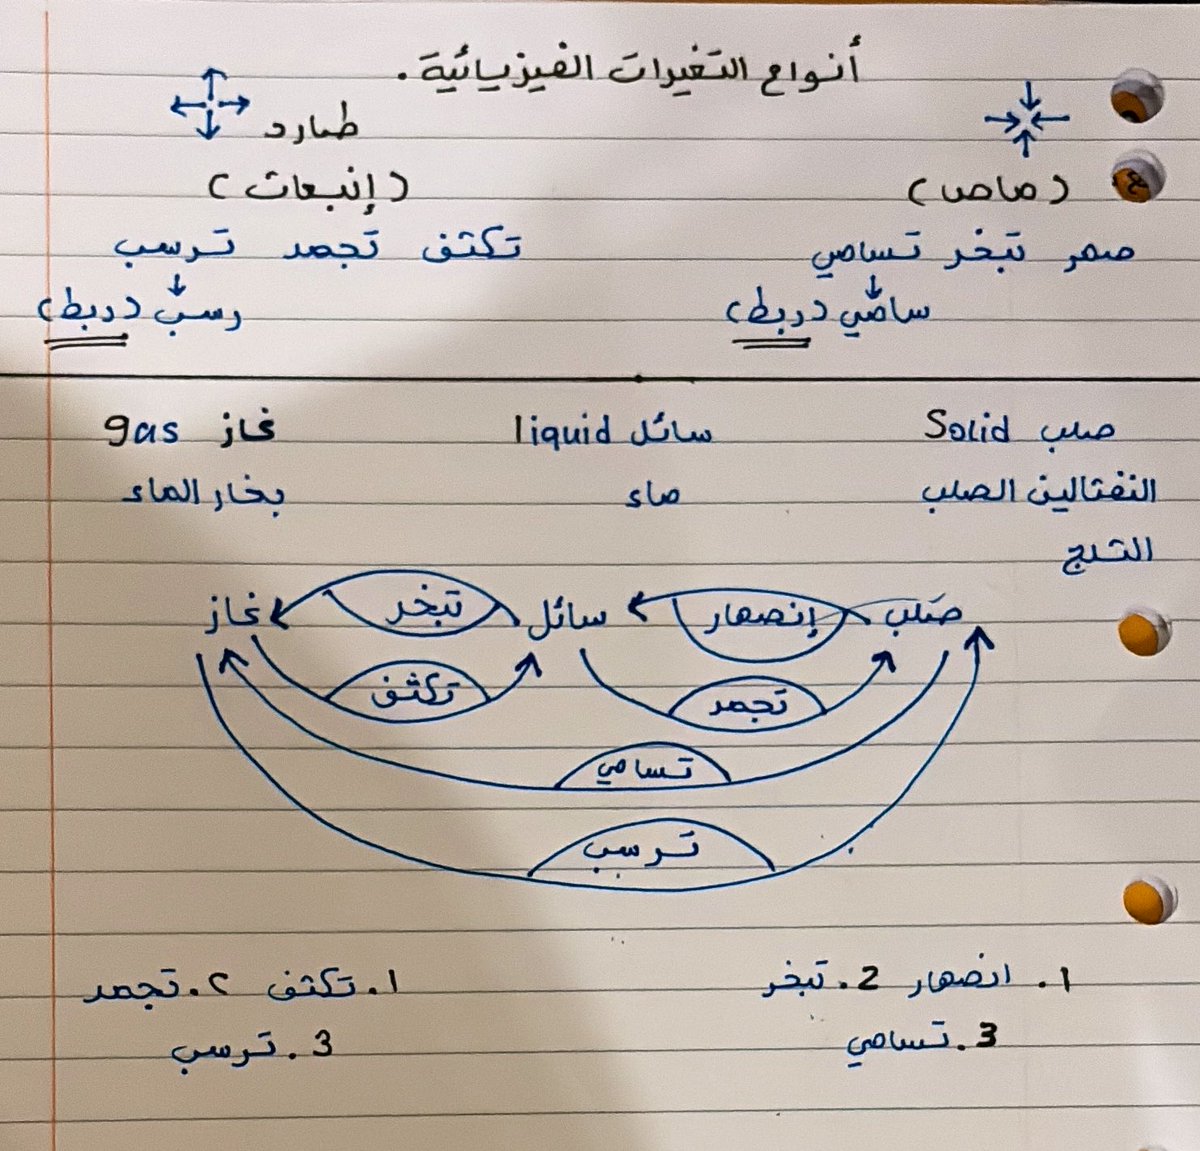 أنواع التغيرات الفيزيائية.
طارد
(ماص) (إنبعاث)
صهر تبخر تسامي تكثف تجمد ترسب
سامي (ربط) رسب (ربط)
صلب Solid سائل liquid غاز gas
النفتالين الصلب ماء بخار الماء
الثلج
صلب إنصهار سائل تبخر غاز
تجمد تكثف
تسامي
ترسب
1. انصهار 2. تبخر 1. تكثف ٢. تجمد
3. تسامي 3. ترسب